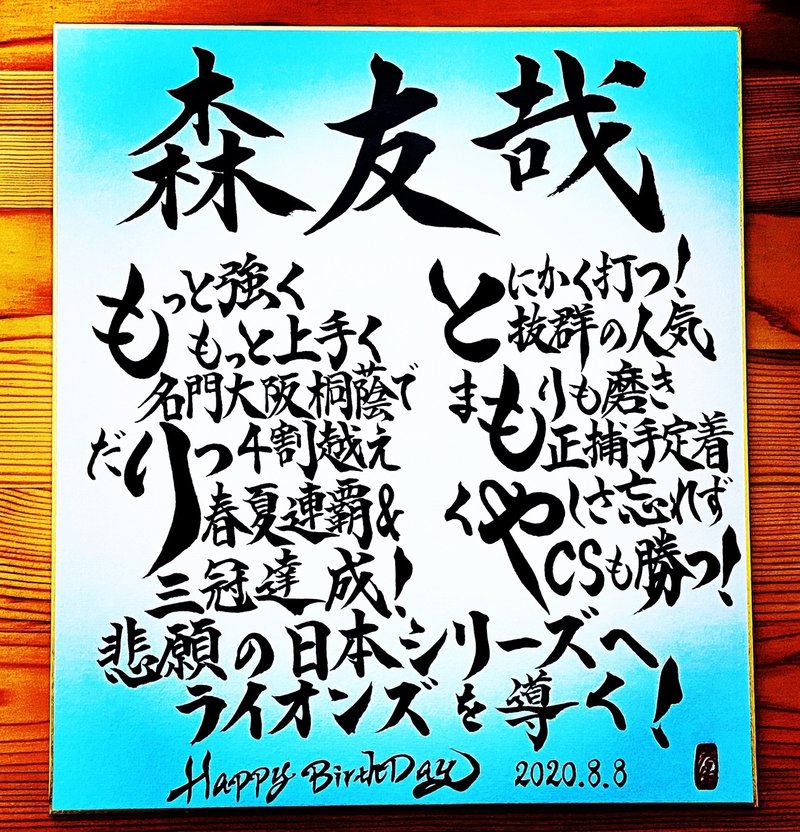 森友哉
もっと強く
もっと上手く
名門大阪桐蔭で
だりつ4割越え
春夏連覇&
三冠達成!
とにかく打つ!
抜群の人気
まもりも磨き
正捕手定着
くやしさ忘れず
CSも勝つ!
悲願の日本シリーズへ
ライオンズを導く!
Happy BirthDay 2020.8.8